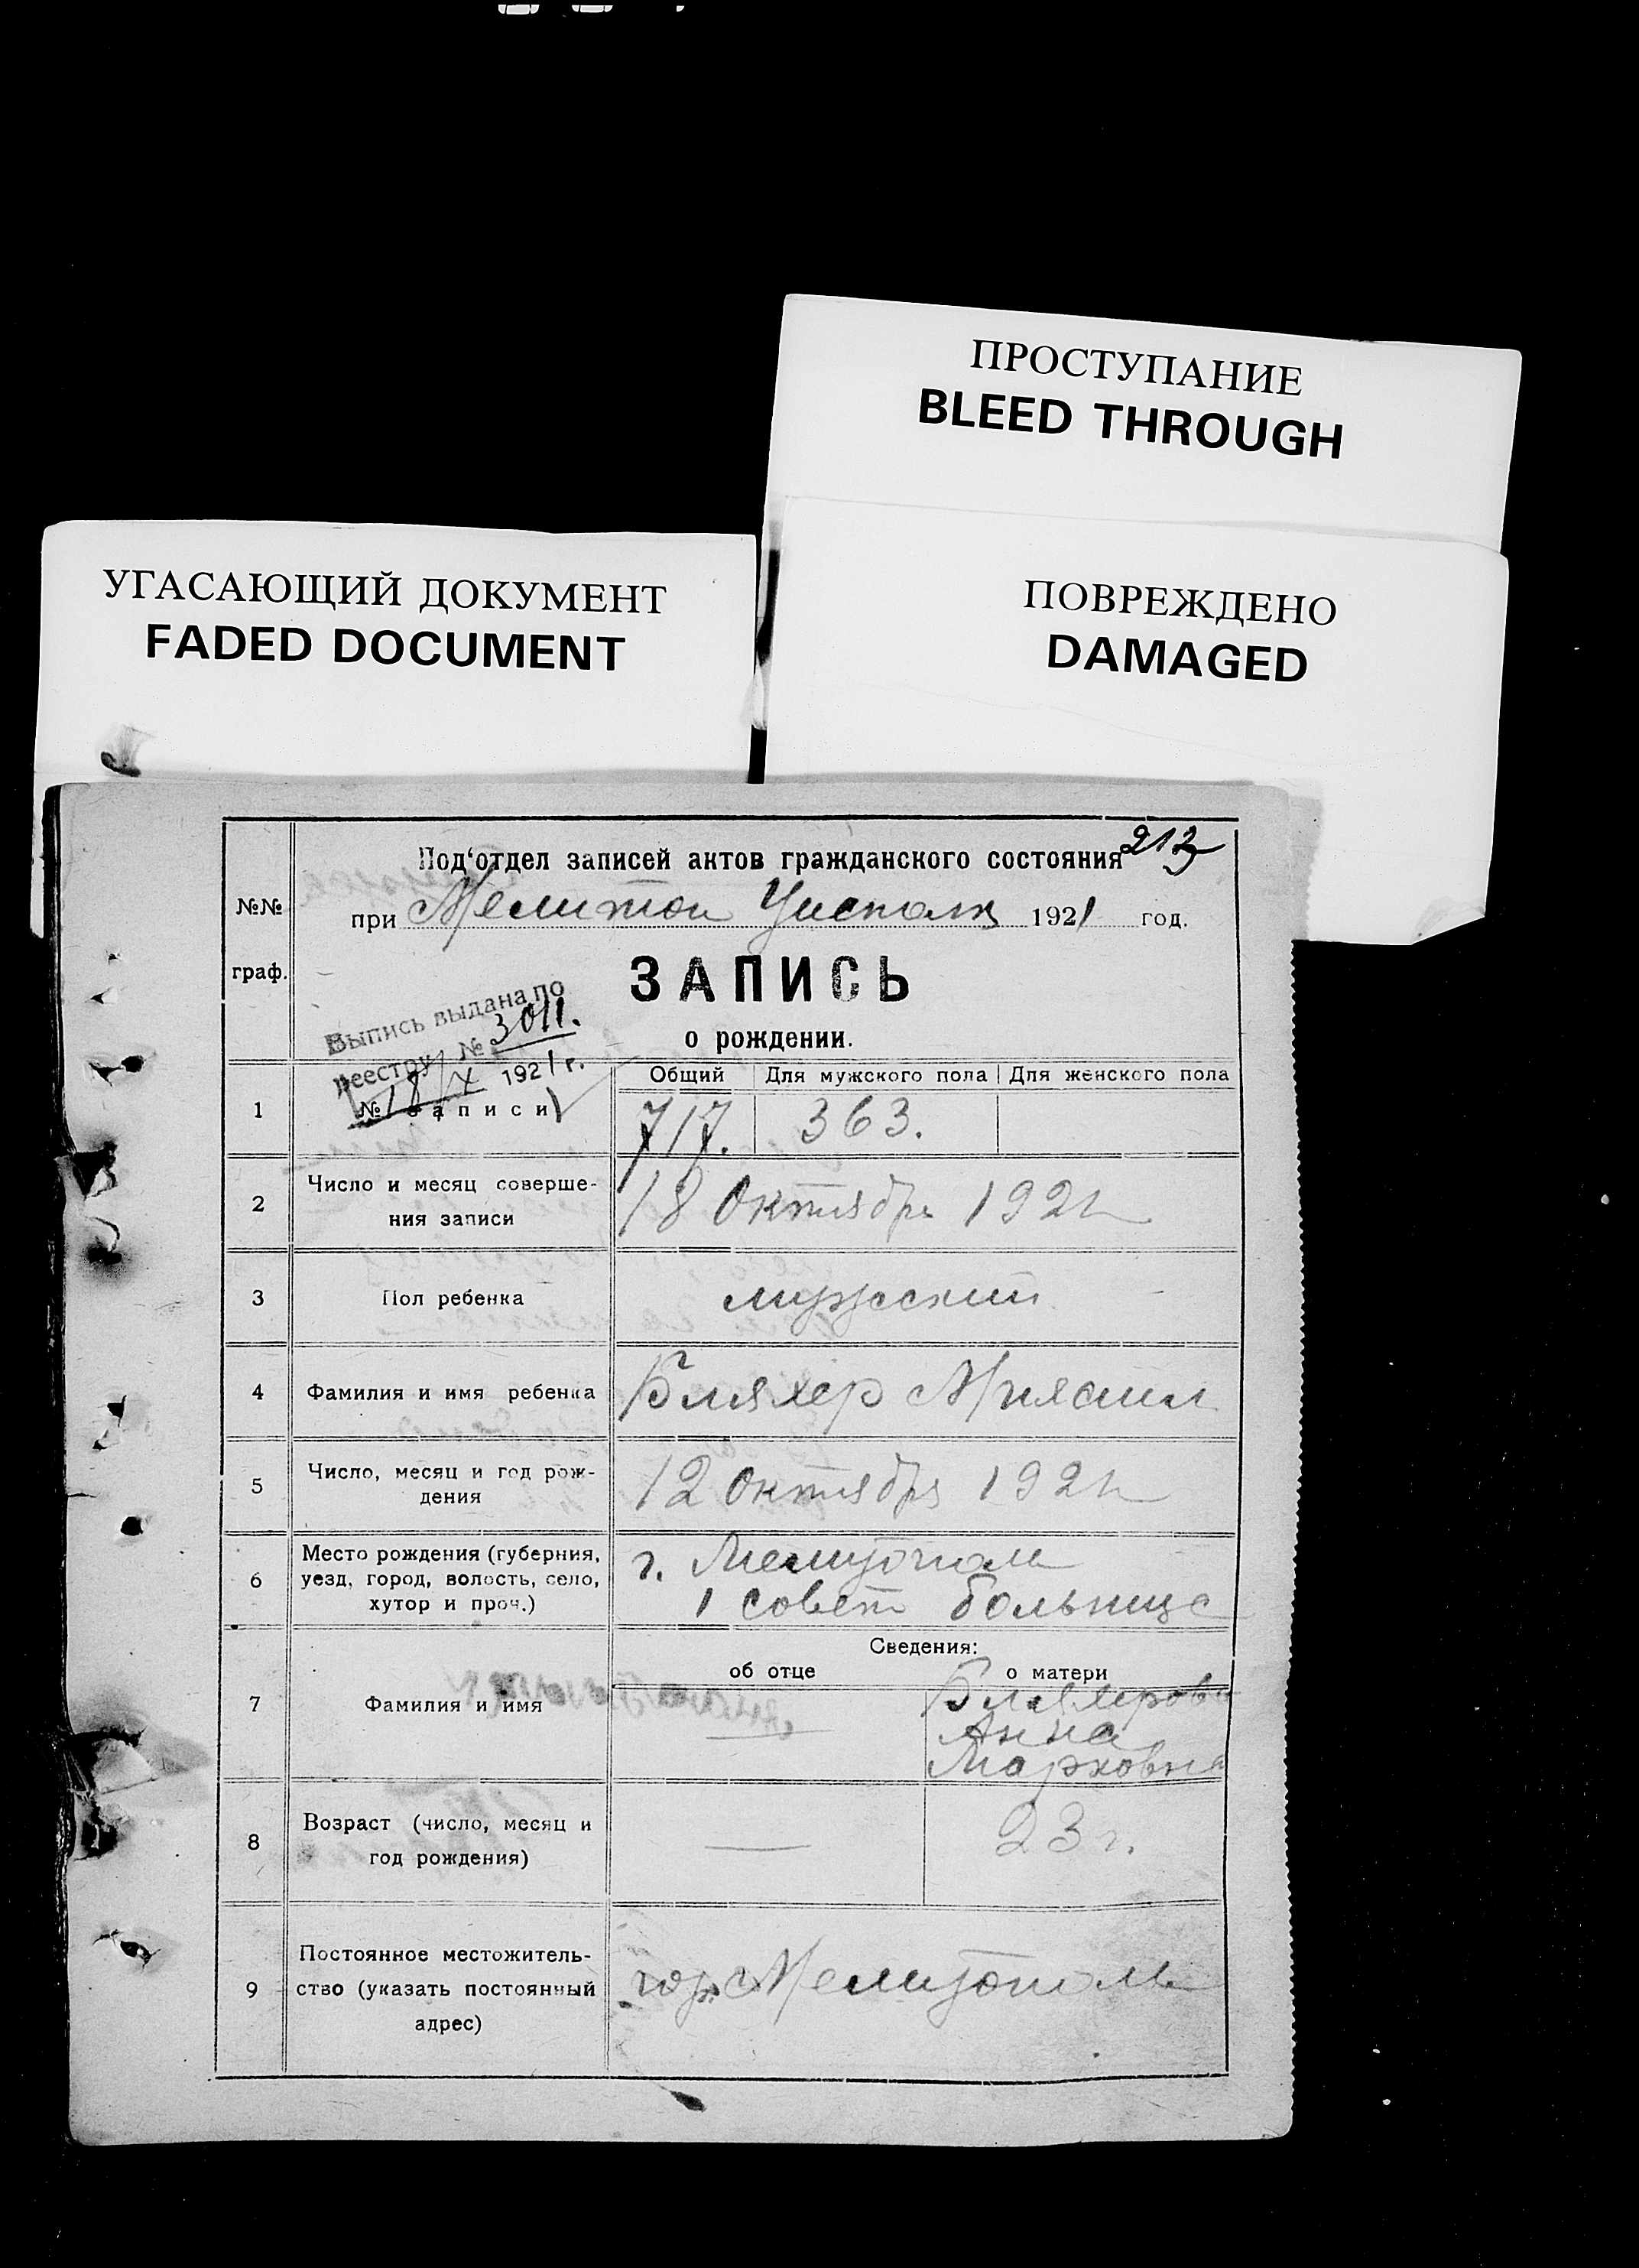 ПРОСТУПАНИЕ
BLEED THROUGH
УГАСАЮЩИЙ ДОКУМЕНТ
FADED DOCUMENT
ПОВРЕЖДЕНО
DAMAGED
213
Под‘отдел записей актов гражданского состояния
№№ граф.
при Мелитоп Уисполк 1921 год.
ЗАПИСЬ
о рождении.
Выпись выдана по
реестру № 3011.
18/X 1921 г.
Общий Для мужского пола Для женского пола
1 № записи 717. 363.
2 Число и месяц соверше-
ния записи
18 Октября 1921
3 Пол ребенка мужский
4 Фамилия и имя ребенка Бляхер
5 Число, месяц и год рож-
дения
12 Октября 1921
6 Место рождения (губерния,
уезд, город, волость, село,
хутор и проч.)
г. Мелитополь
1 Совет больница
Сведения:
об отце о матери
7 Фамилия и имя
— Бляхерова
Анна
Марковна
8 Возраст (число, месяц и
год рождения)
— 23 г.
9 Постоянное местожитель-
ство (указать постоянный
адрес)
гор. Мелитополь